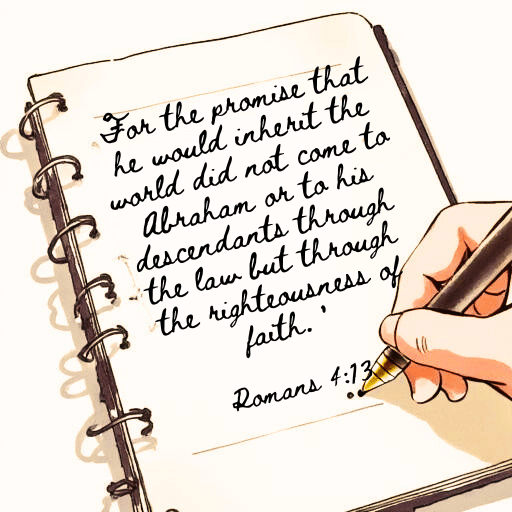 'For the promise that
he would inherit the
world did not come to
Abraham or to his
descendants through
the law but through
the righteousness of
faith.'
Romans 4:13